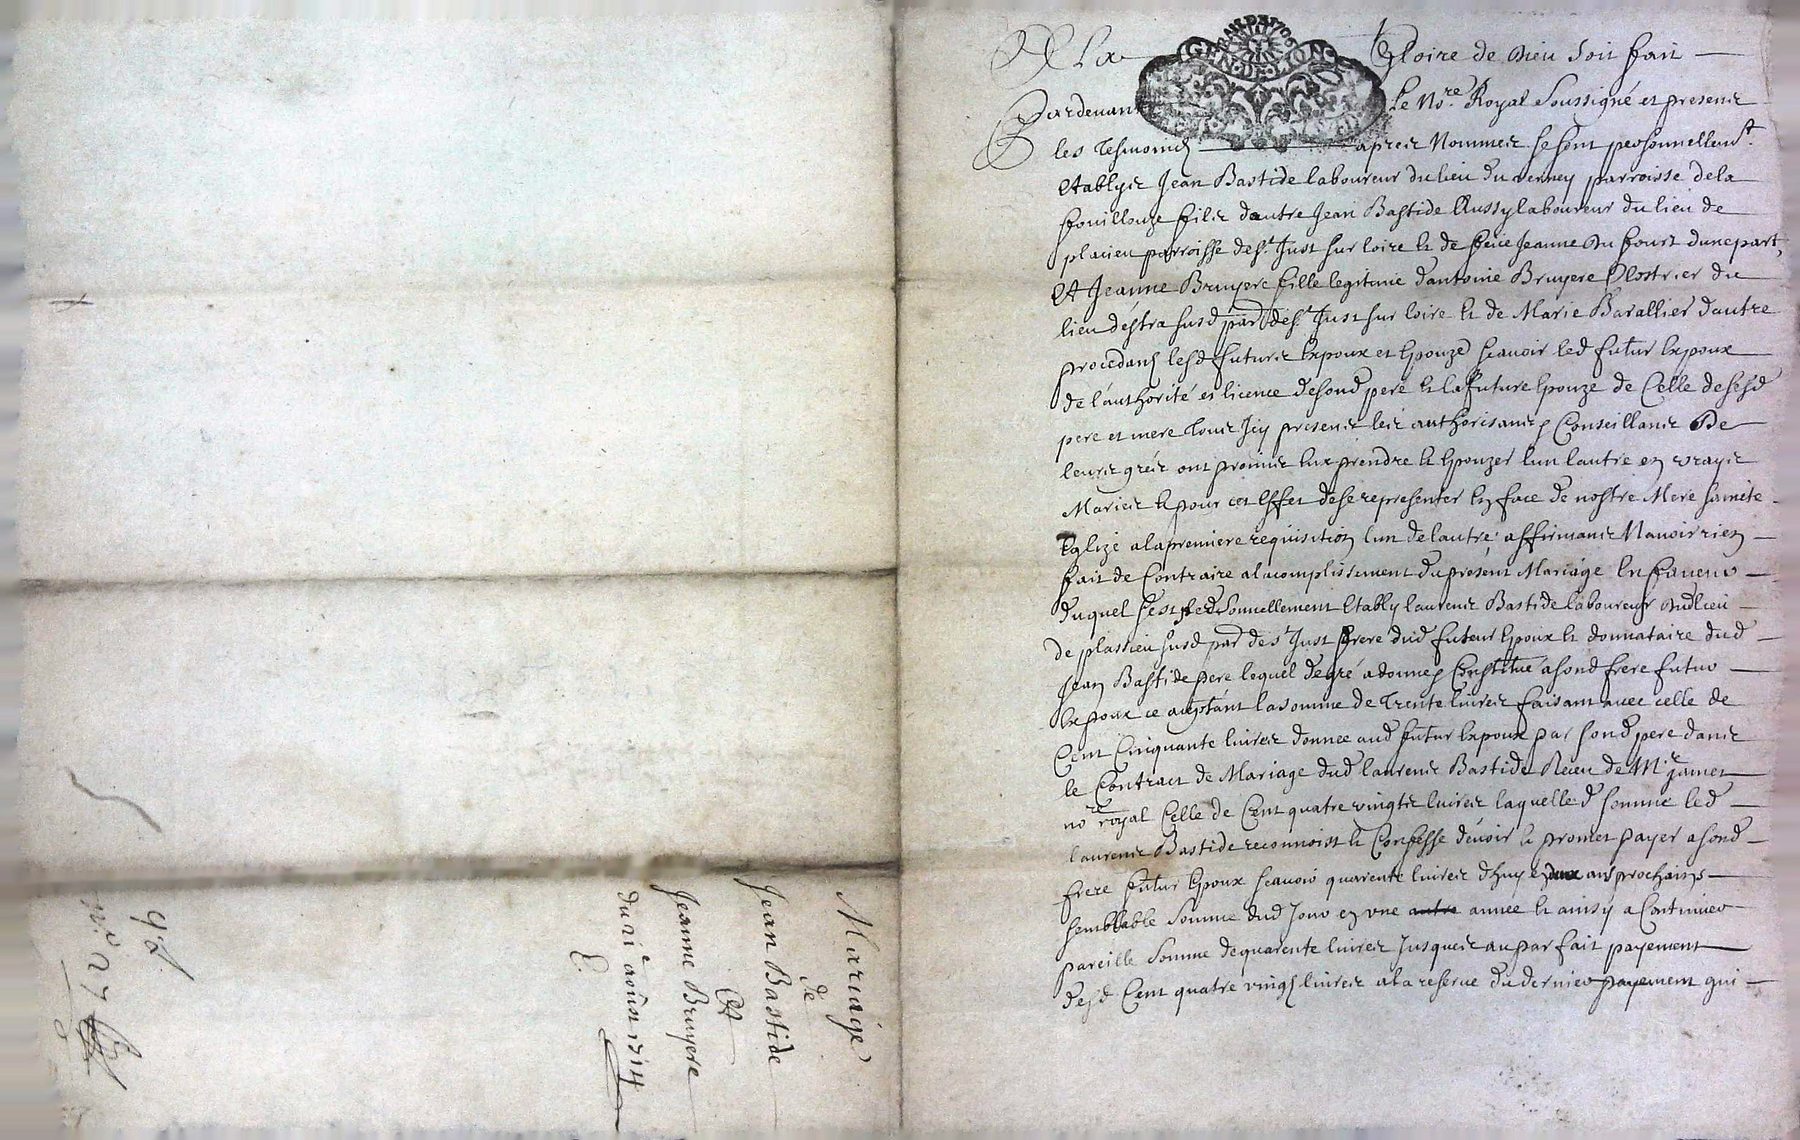 A La Gloire de Dieu Soit fait
GEN. DE LION
Pardevant Le No.re Royal Soussigné et presentz
les Tesmoins apres Nommez se sont personnellem.t
Establys Jean Bastide laboureur du lieu du verney parroisse de la
fouillouze filz dautre Jean Bastide Aussy laboureur du lieu de
placieu parroisse de s.t Just sur loire et de feüe Jeanne du fourt dunepart,
Et Jeanne Bruyere fille legitime dantoine Bruyere Clostrier du
lieu déstra susd par de s.t Just sur loire et de Marie Barallier dautre
procedans lesd futurs Expoux et Epouze scauoir led futur Expoux
de láuthorité et licence de sond pere et la future Epouze de Celle de sesd
pere et mere Tous Icy presentz les authorisantz et Conseillantz De
leurs gréz ont promis eux prendre et Epouzer lun lautre en vrays
Mariez et pour cet Effet de se representer En face de nostre Mere saincte
Eglize a la premiere requisition lun de lautre affirmantz Nauoir rien
fait de Contraire al acomplissement du présent Mariage En faueur
duquel sest personnellement Estably laurens Bastide laboureur dudlieu
de plassieu susd par de s.t Just frere dud futeur Epoux et donnataire dud
Jean Bastide pere lequel de gré a donné et Constitué a sond frere futur
Expoux ce aceptant la somme de Trente liures faisant auec celle de
Cent Cinquante liures donnee aud futur Expoux par sond pere dans
le Contract de Mariage dud laurens Bastide Receu de M.e Jamet
no.re royal Celle de Cent quatre vingtz liures laquelle d somme led
laurens Bastide reconnoist et Confesse deuoir et promet payer a sond
frere futur Epoux scauoir quarente liures dhuy en deux ans prochains
semblable somme dud Jour en vne autre annee et ainsy a Continuer
pareille somme de quarente liures Jusques au parfait payement
desd Cent quatre vingt liures ala reserue du dernier payement qui
Mariage
de
Jean Bastide
Et
Jeanne Bruyere
du 21e aoust 1714